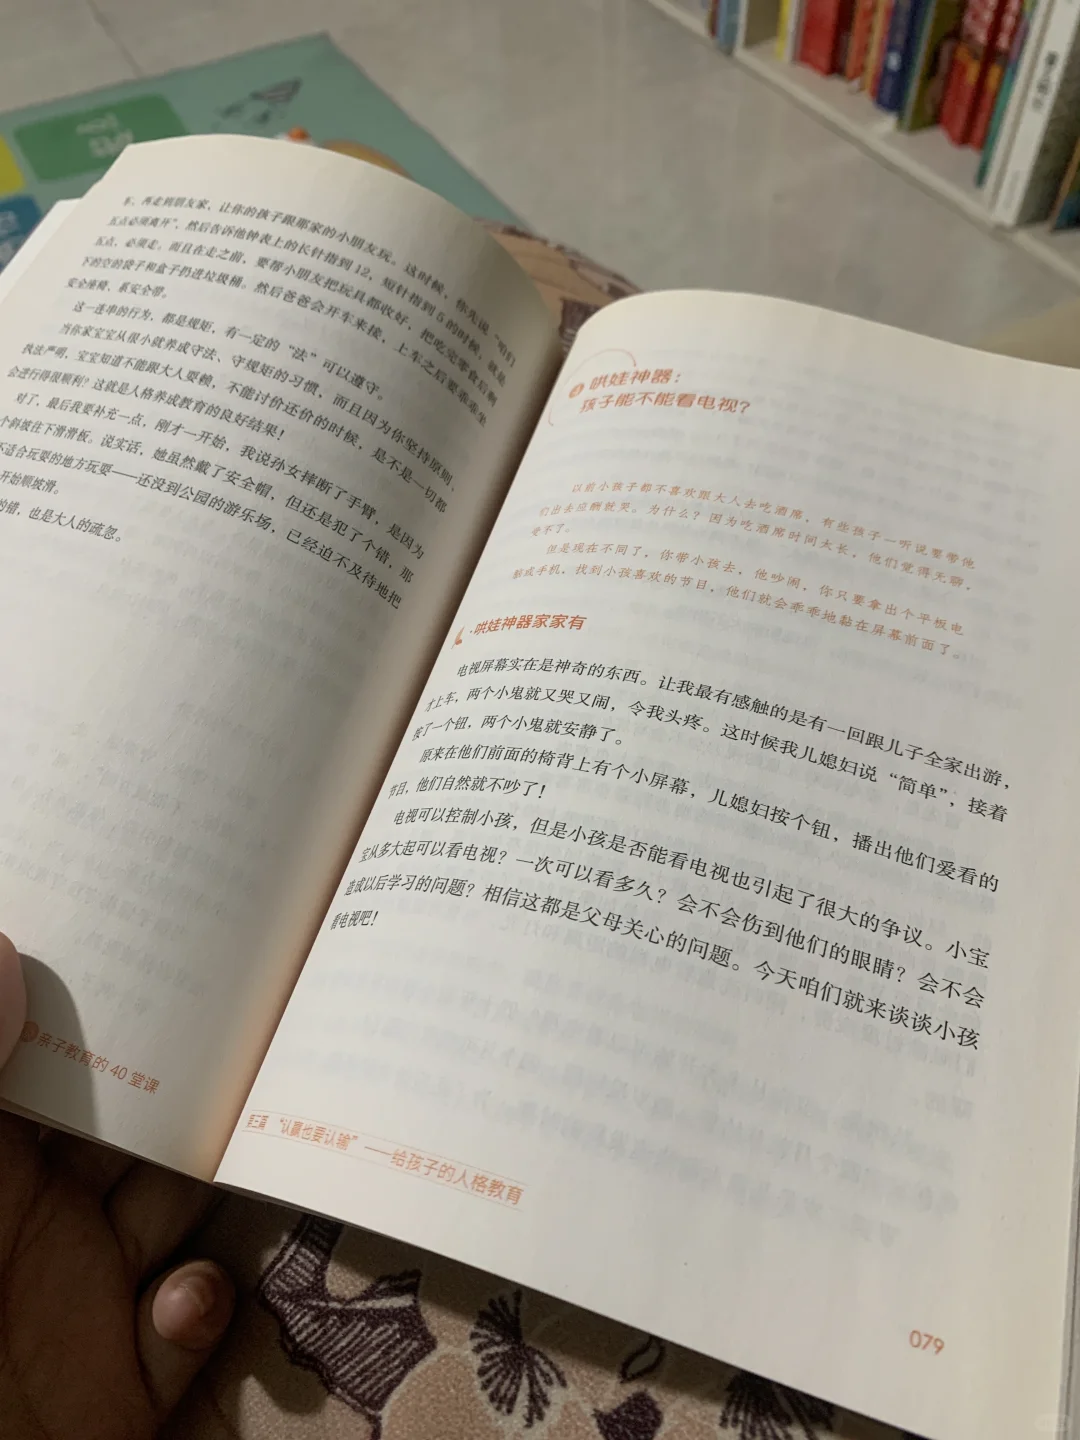 车，再走到朋友家，让你的孩子跟那家的小朋友玩。这时候，你先说“咱们
五点必须离开”，然后告诉他钟表上的长针指到 12，短针指到 5 的时候，就是
五点，必须走。而且在走之前，要帮小朋友把玩具都收好，把吃完零食后剩
下的空的袋子和盒子扔进垃圾桶。然后爸爸会开车来接，上车之后要乖乖坐
安全座椅、系安全带。
这一连串的行为，都是规矩，有一定的“法”可以遵守。
当你家宝宝从很小就养成守法、守规矩的习惯，而且因为你坚持原则、
执法严明，宝宝知道不能跟大人耍赖，不能讨价还价的时候，是不是一切都
会进行得很顺利？这就是人格养成教育的良好结果！
对了，最后我要补充一点，刚才一开始，我说孙女摔断了手臂，是因为
个斜坡往下滑滑板。说实话，她虽然戴了安全帽，但还是犯了个错，那
不适合玩耍的地方玩耍——还没到公园的游乐场，已经迫不及待地把
开始顺坡滑。
的错，也是大人的疏忽。
亲子教育的 40 堂课
哄娃神器：
孩子能不能看电视？
以前小孩子都不喜欢跟大人去吃酒席，有些孩子一听说要带他
们出去应酬就哭。为什么？因为吃酒席时间太长，他们觉得无聊，
受不了。
但是现在不同了，你带小孩去，他吵闹，你只要拿出个平板电
脑或手机，找到小孩喜欢的节目，他们就会乖乖地黏在屏幕前面了。
·哄娃神器家家有
电视屏幕实在是神奇的东西。让我最有感触的是有一回跟儿子全家出游，
才上车，两个小鬼就又哭又闹，令我头疼。这时候我儿媳妇说“简单”，接着
按了一个钮，两个小鬼就安静了。
原来在他们前面的椅背上有个小屏幕，儿媳妇按个钮，播出他们爱看的
节目，他们自然就不吵了！
电视可以控制小孩，但是小孩是否能看电视也引起了很大的争议。小宝
宝从多大起可以看电视？一次可以看多久？会不会伤到他们的眼睛？会不会
造成以后学习的问题？相信这都是父母关心的问题。今天咱们就来谈谈小孩
看电视吧！
第三篇 “认赢也要认输”——给孩子的人格教育
079